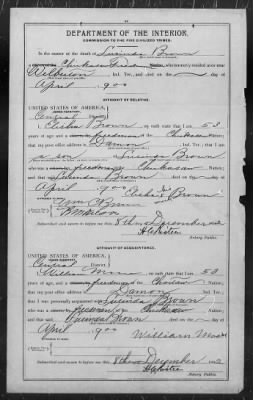 DEPARTMENT OF THE INTERIOR.
COMMISSION TO THE FIVE CIVILIZED TRIBES.
In the matter of the death of Lucinda Brown
a Chickasaw Freedman who formerly resided at or near
Wilburton, Ind. Ter., and died on the day of
April, 1900
AFFIDAVIT OF RELATIVE.
UNITED STATES OF AMERICA,
Central
I, Elisha Brown, on oath state that I am 53
years of age and a freedman of the Chickasaw Nation;
that my post office address is Damon, Ind. Ter.; that I am
a son of Lucinda Brown
who was a freedman of the Chickasaw Nation;
and that said Lucinda Brown died on the day of
April, 1900
Elisha Brown
Subscribed and sworn to before me this 8th day of December 1902
Notary Public.
AFFIDAVIT OF ACQUAINTANCE.
UNITED STATES OF AMERICA,
Central District.
I, William, on oath state that I am 50
years of age, and a freedman of the Choctaw Nation;
that my post office address is Damon, Ind. Ter.;
that I was personally acquainted with Lucinda Brown
who was a freedman of the Chickasaw Nation;
and that said Lucinda Brown died on the day of
April, 1900
William
Subscribed and sworn to before me this 8th day of December 1902
Notary Public.